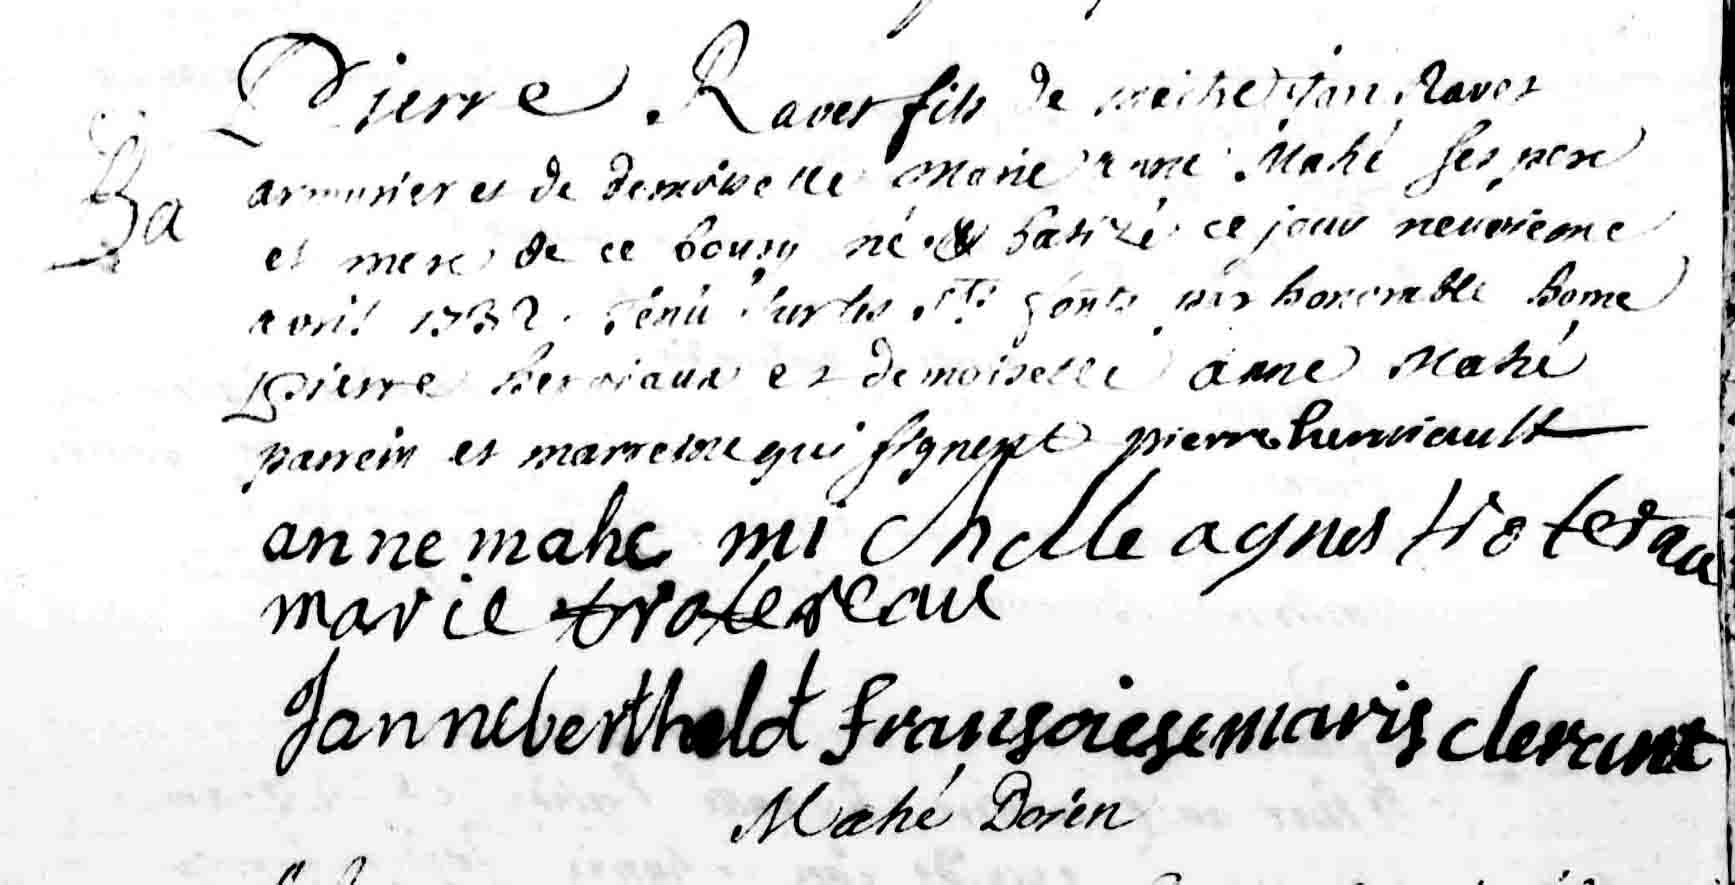 Ba
Pierre Raver fils de maitre jan Raver
armurier et de demoiselle Marie anne Mahé ses pere
et mere de ce bourg né & batizé ce jour neuvieme
avril 1732 tenu sur les sts fonts par honorable home
pierre herviaux et demoiselle anne Mahé
parrein et marreine qui signent pierre herviault
anne mahe mi chelle agnes troterau
marie trotereau
Janne berthelot fransoiese maris clerant
Mahé Doien